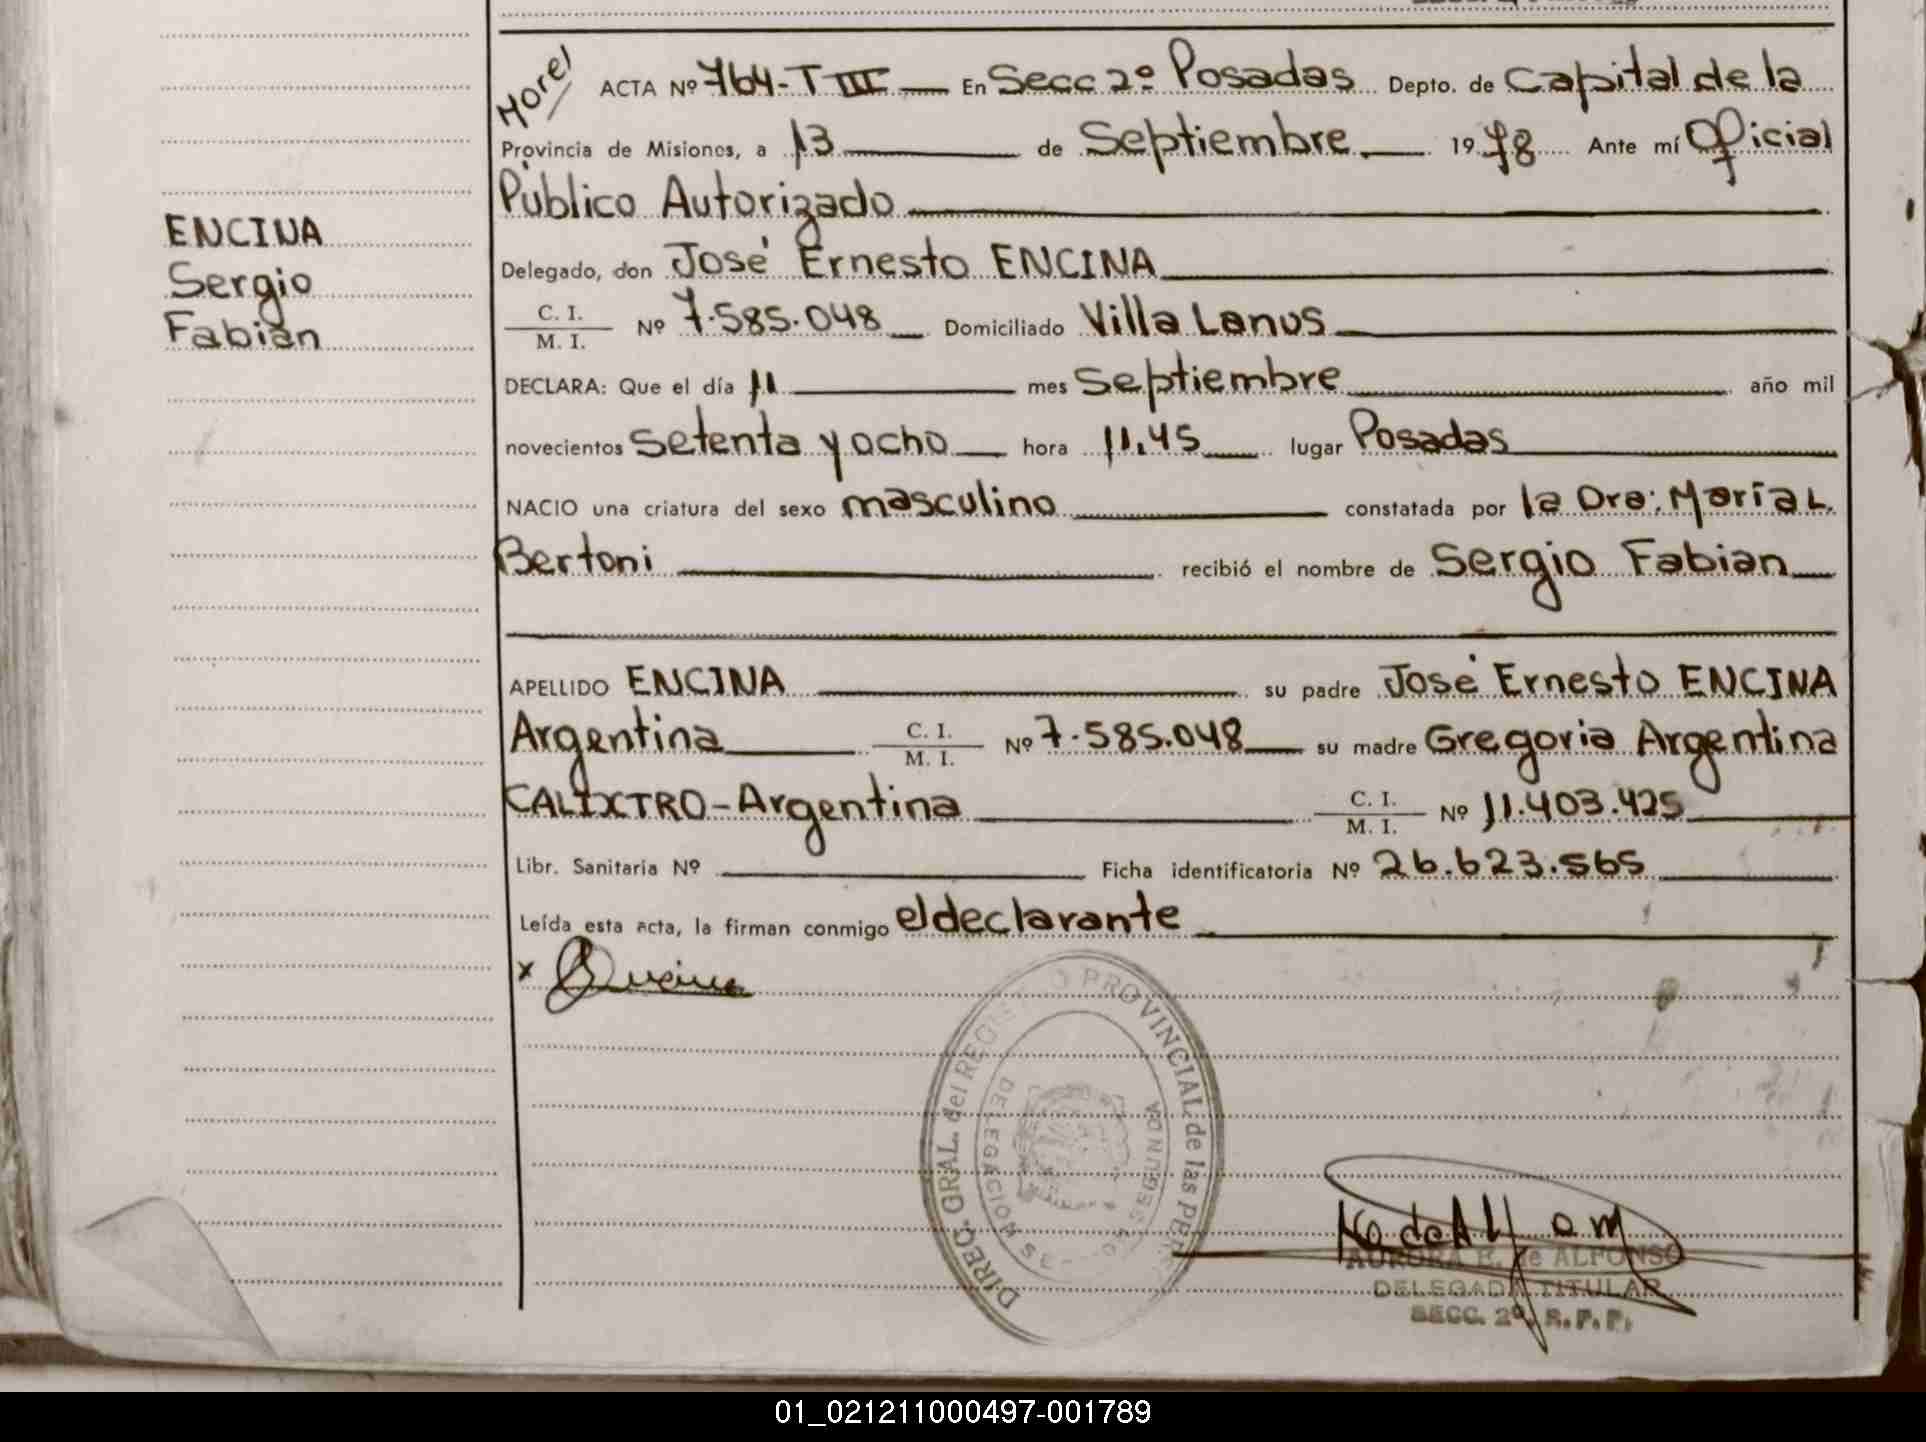 Morel
ACTA Nº 764-T III — En Secc 2º Posadas Depto. de Capital de la
Provincia de Misiones, a 13 de Septiembre 1978 Ante mí Oficial
Público Autorizado
ENCINA
Sergio
Fabián
Delegado, don José Ernesto ENCINA
C. I.
M. I. Nº 7.585.048 Domiciliado Villa Lanus
DECLARA: Que el día 11 mes Septiembre año mil
novecientos setenta y ocho hora 11.45 lugar Posadas
NACIO una criatura del sexo masculino constatada por la Dra: María L.
Bertoni recibió el nombre de Sergio Fabian
APELLIDO ENCINA su padre José Ernesto ENCINA
Argentina C. I.
M. I. Nº 7.585.048 su madre Gregoria Argentina
CALIXTRO - Argentina C. I.
M. I. Nº 11.403.425
Libr. Sanitaria Nº Ficha identificatoria Nº 26.623.565
Leída esta acta, la firman conmigo el declarante
x Encina
DIREC. GRAL. del REGISTRO PROVINCIAL de las
DELEGACION SEGUNDA
AURORA E. de ALFONSO
DELEGADA TITULAR
SECC. 2º R. P. P.
01_021211000497-001789